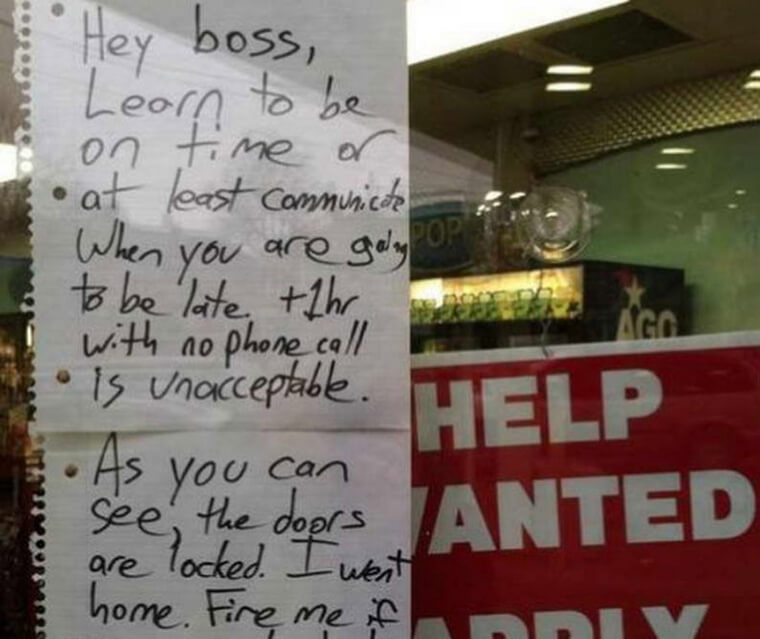 Hey boss,
Learn to be
on time or
at least communicate
When you are going
to be late. +1hr
with no phone call
is unacceptable.
As you can
see, the doors
are locked. I went
home. Fire me if
POP
AGO
HELP
ANTED